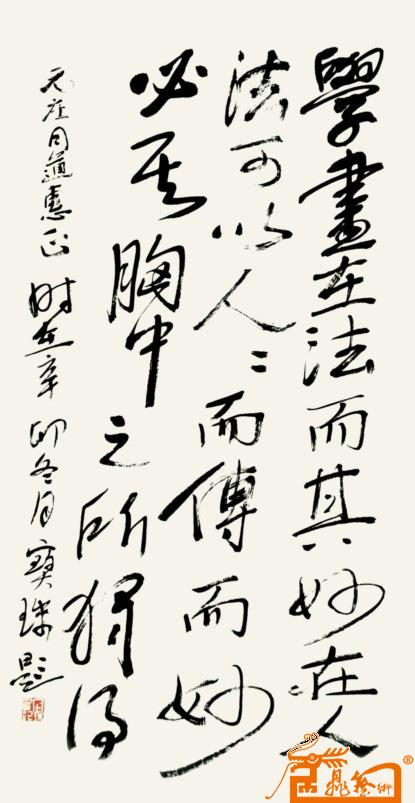 學畫在法而其妙在人
法可以人〻而傳而妙
必其胸中之所獨得
同道惠正 时在辛卯冬月寶珠題